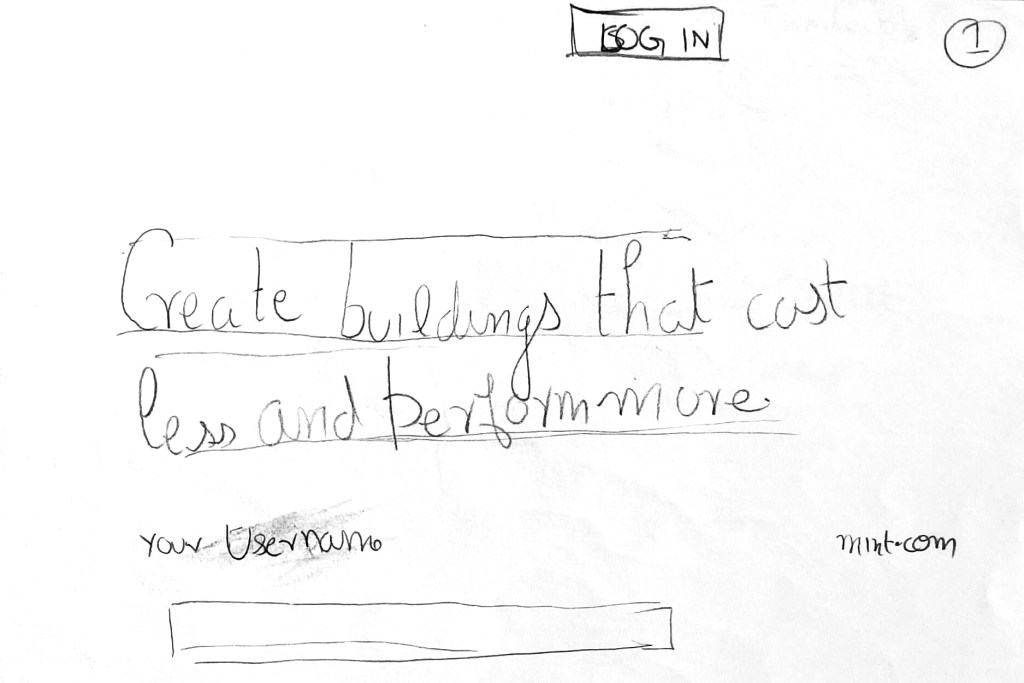 LOG IN
1
Create buildings that cost
less and perform more
Your Username
mint.com